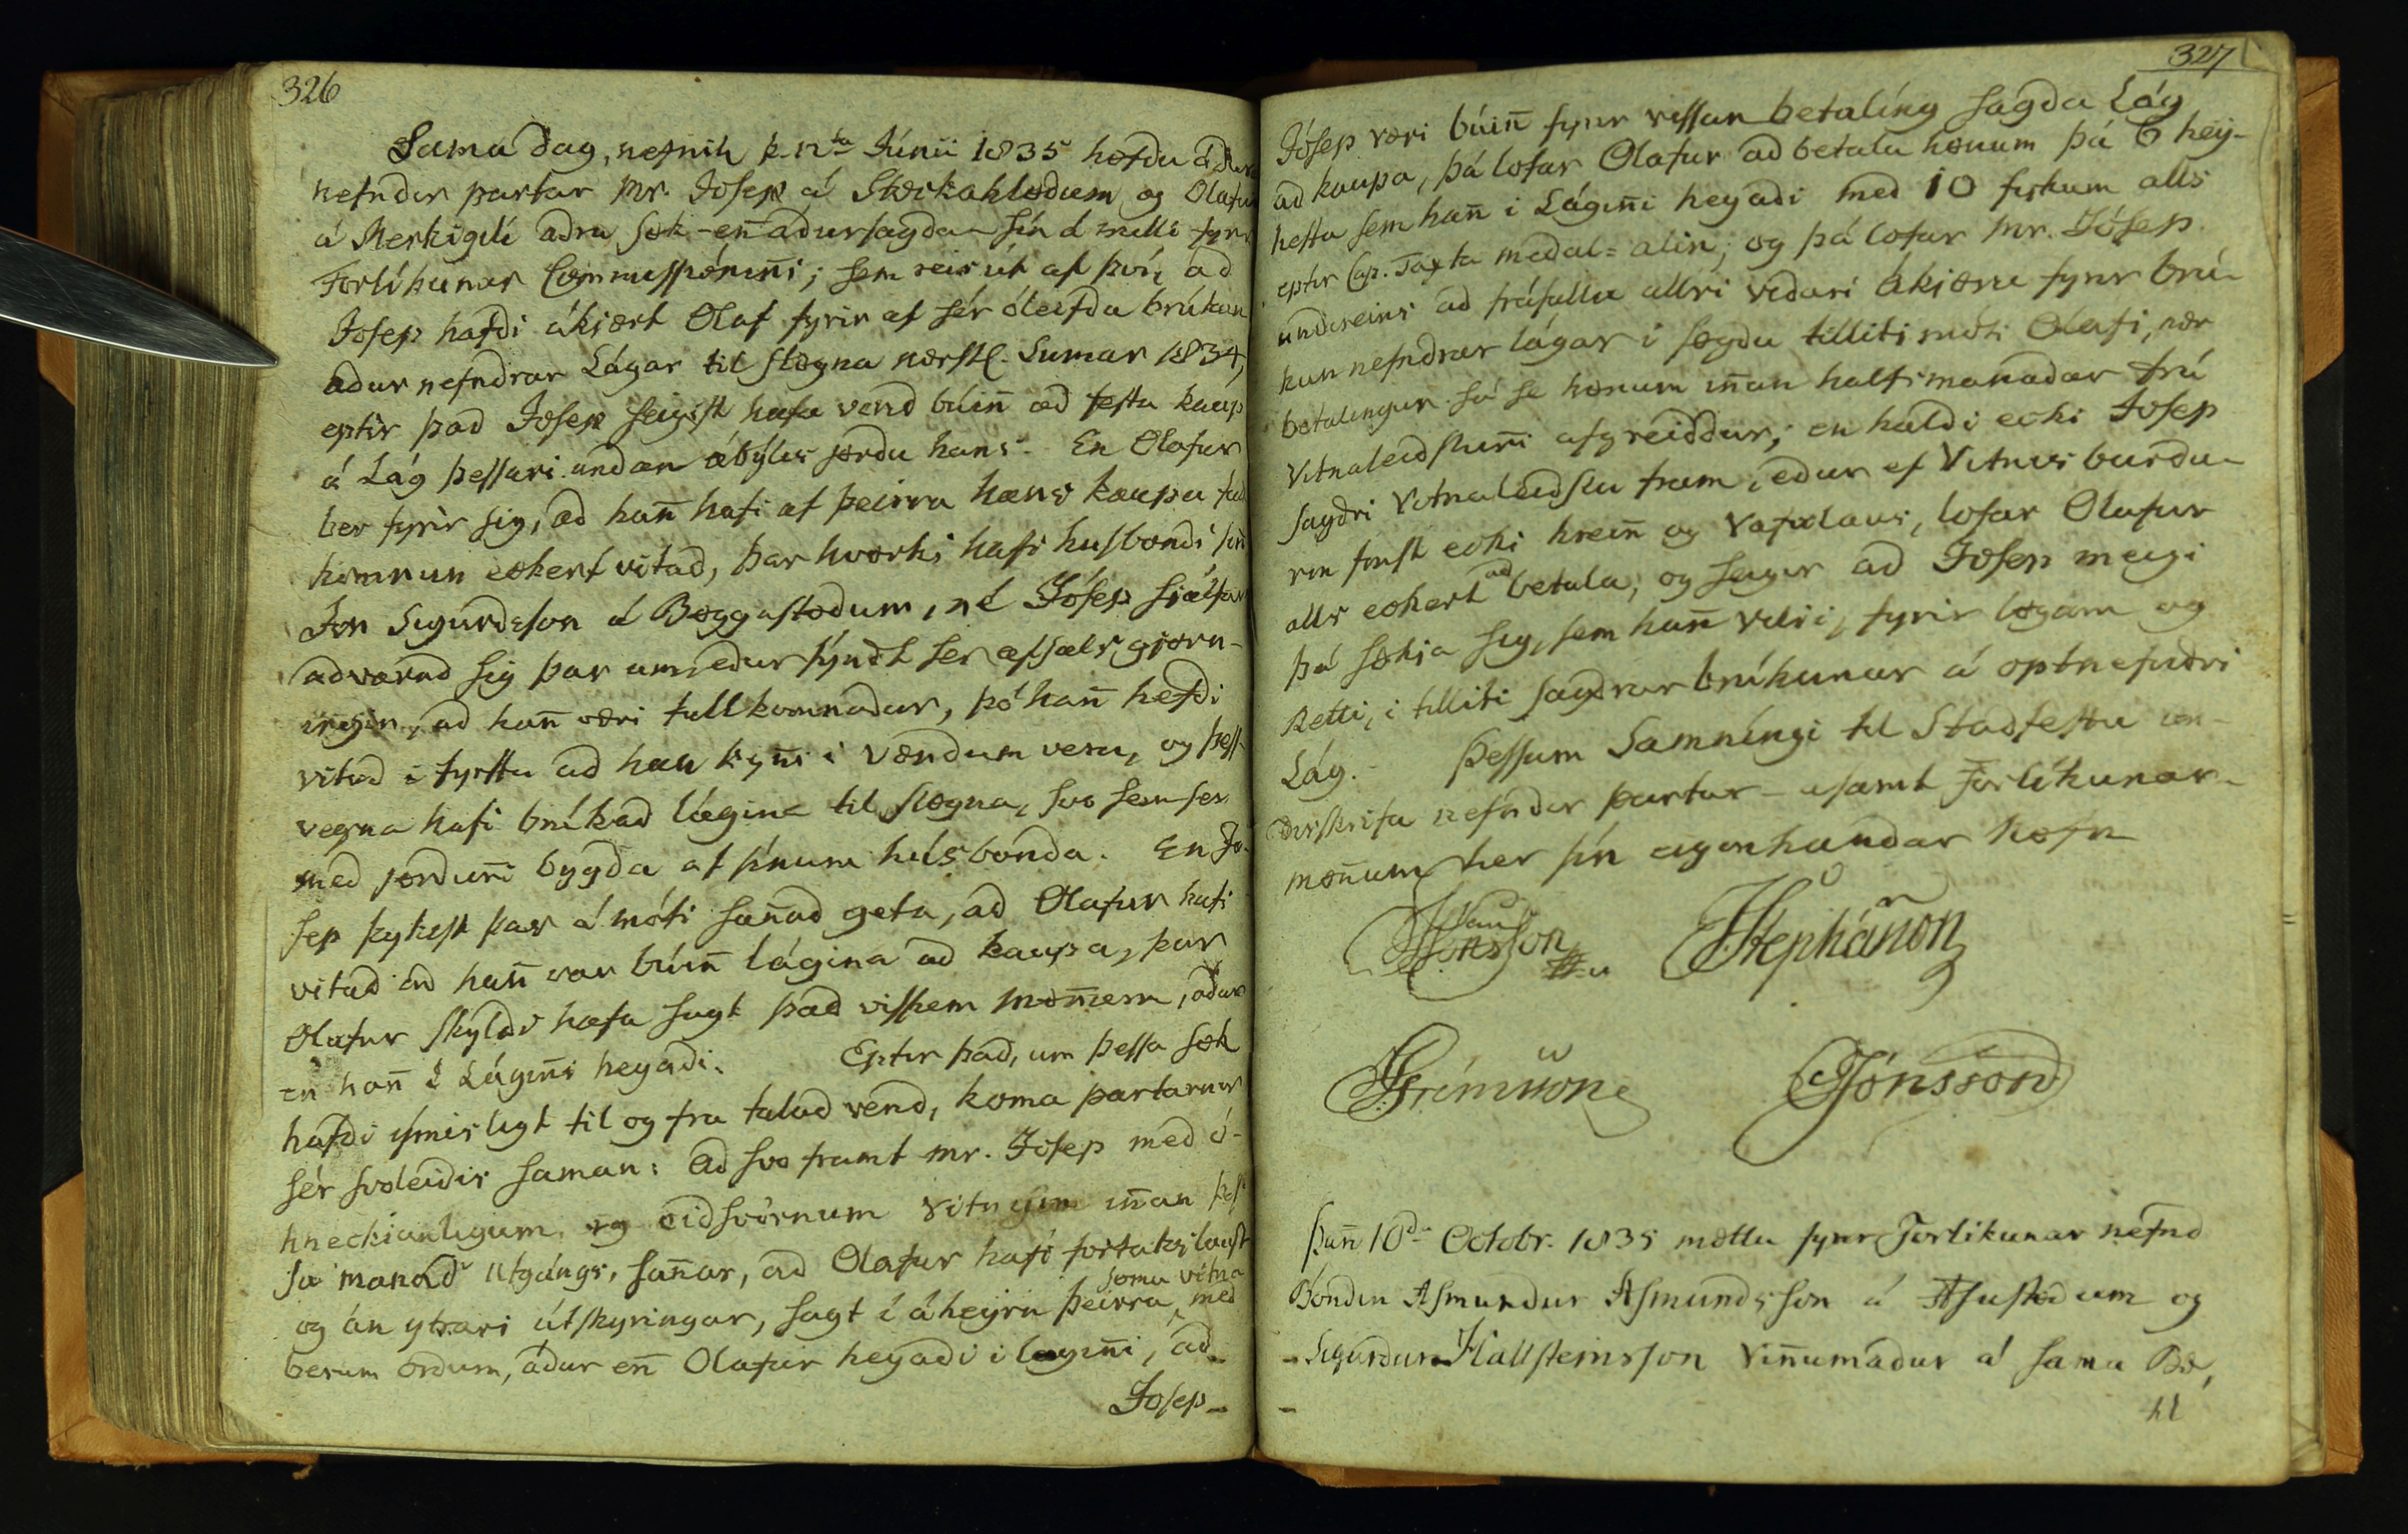 326
Sama dag, nefnil þ. 12ta Júnii 1835 høfdu ádur
nefndir partar Mr. Josep á Steckahlødum og Olafur
á Merkigili adra søk - en̄ adursagda - sín á milli fyrir
Forlíkunar Commissionin̄i; sem reis út af því, ad
Josep hafdi ákjært Olaf fyrir af sér óleifda brúkun
adur nefndrar Lágar til slægna nærstl. Sumar 1834,
eptir þad Josep seigist hafa verid búin̄ ad festa kaup
á Lág þessari undan ábýlis jørdu hans. En Olafur
ber fyrir sig, ad han̄ hafi af þeirra hans kaupu
komnun eckert vitad, þar hvorki hafi husbondi sin̄
Jon Sigurdsson á Bøggastødum, né Jósep sjálfur
advarad sig þar um, edur sýndt sér afsals gjørn-
ingin, ad han̄ væri fullkomnadur, þó han̄ hefdi
vitad i fyrstu ad han kyn̄i i vændum vera, og þess-
vegna hafi brúkad lágina til slægna, svo sem ser
med jørdun̄i bygda af sínum húsbónda. En Jó-
sep þykist þar á móti san̄ad geta, ad Olafur hafi
vitad ad han̄ var búin̄ lágina ad kaupa, þar
Olafur skyldi hafa sagt þad vissum møn̄um, ádur
en han̄ í Lágin̄i heyadi. Eptir þad, um þessa søk
hafdi ýmislegt til og fra talad verid, koma partarnir
sér svoleidis saman: Ad svo framt Mr. Josep med ó-
hneckianligum, og eidsvörnum vitnum in̄an þes-
sa manad útgángs, san̄ar, ad Olafur hafi fortakslaust
og án ytrari útskyringar, sagt í áheyrn þeirra sømu vitna med
berum ordum, ádur en̄ Olafur heyadi i lágin̄i, ad
Josep
327
Jósep væri búin̄ fyrir vissan betalíng sagda Lág
ad kaupa, þá lofar Olafur ad betala hønum þá 6 hey-
hesta sem han̄ i Lágin̄i heyadi med 10 fiskum alls
eptir Cap. Taxta medal-alin; og þá lofar Mr. Jósep
undireins ad fráfalla allri vidari ákjæru fyrir brú-
kun nefndrar lágar i søgdu tilliti móti Olafi, nær
betalingur sá sé hønum in̄an halfsmanadar frá
Vitnaleidslun̄i afgreiddur; en haldi ecki Josep
sagdri Vitnaleidslu fram, edur ef Vitnisburdu-
rin finst ecki hrein̄ og vafalaus, lofar Olafur
alls eckert ad betala, og segir ad Josep meigi
þá sækia sig, sem han̄ vilji, fyrir løgum og
Retti, i tilliti sagdrar brúkunar á optnefndri
Lág. Þessum Samníngi til Stadfestu un-
dirskrifa nefndir partar - asamt Forlíkunar-
møn̄um her sín eiginhandar nøfn
JJonsson JStephánson
Grímsson JJónsson
Þan̄ 10da Octobr. 1835 mættu fyrir Forlikunar nefnd
Bóndin Asmundur Asmundsson á Þufustødum og
Sigurdur Hallsteinsson Vin̄umadur á sama Bæ,
til